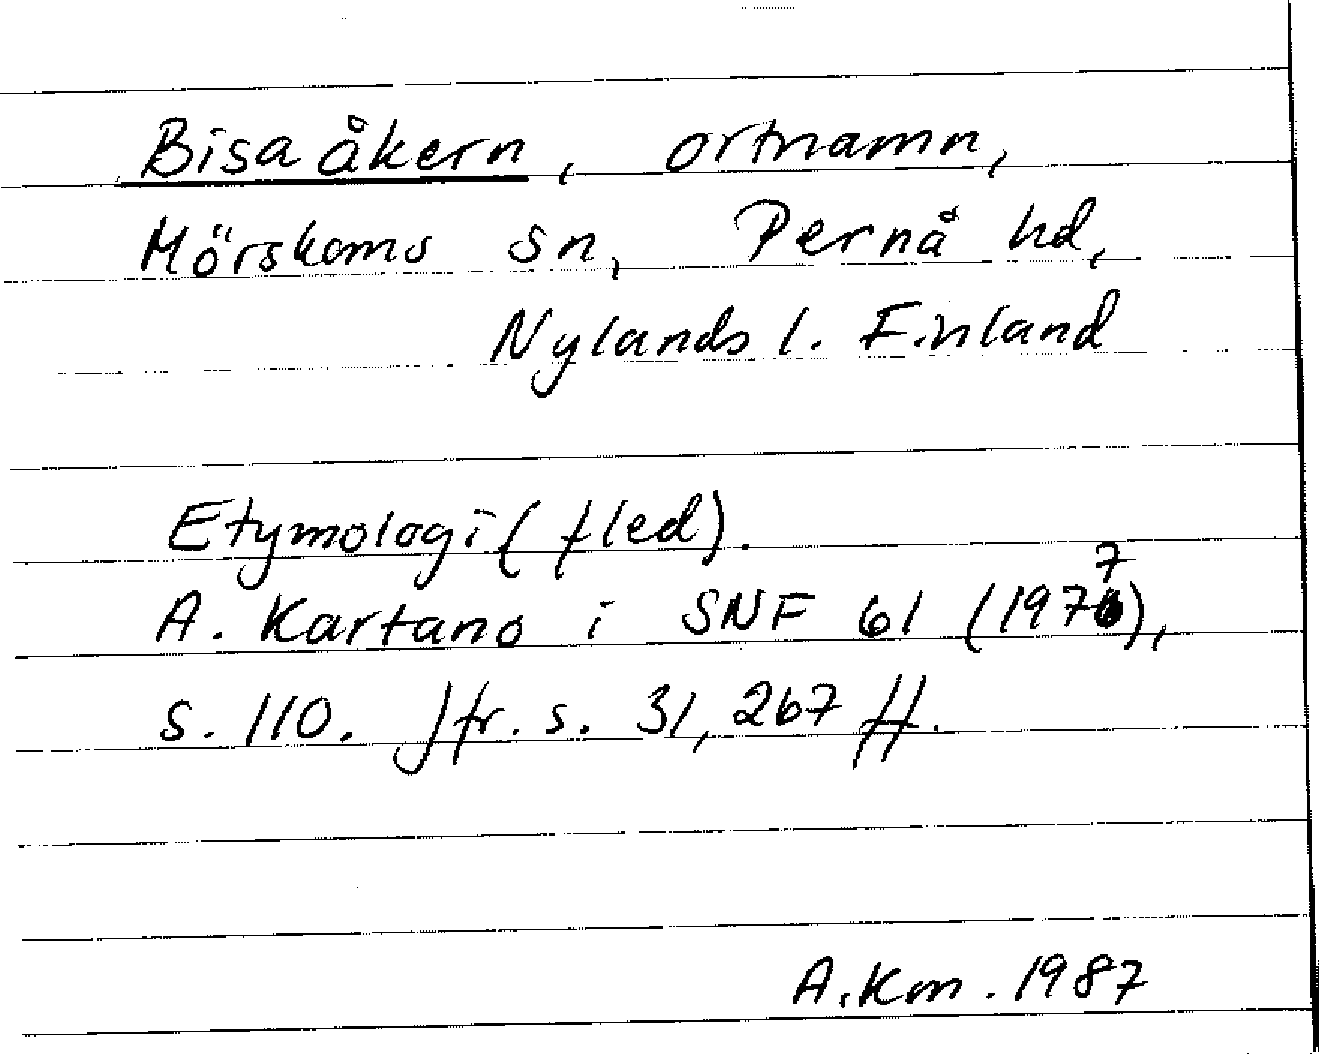 Bisaåkern, ortnamn,
Mörskoms sn, Pernå hd,
Nylands l. Finland
Etymologi (fled).
A. Kartano i SNF 61 (1977),
s. 110. Jfr. s. 31, 267 ff.
A.Km. 1987